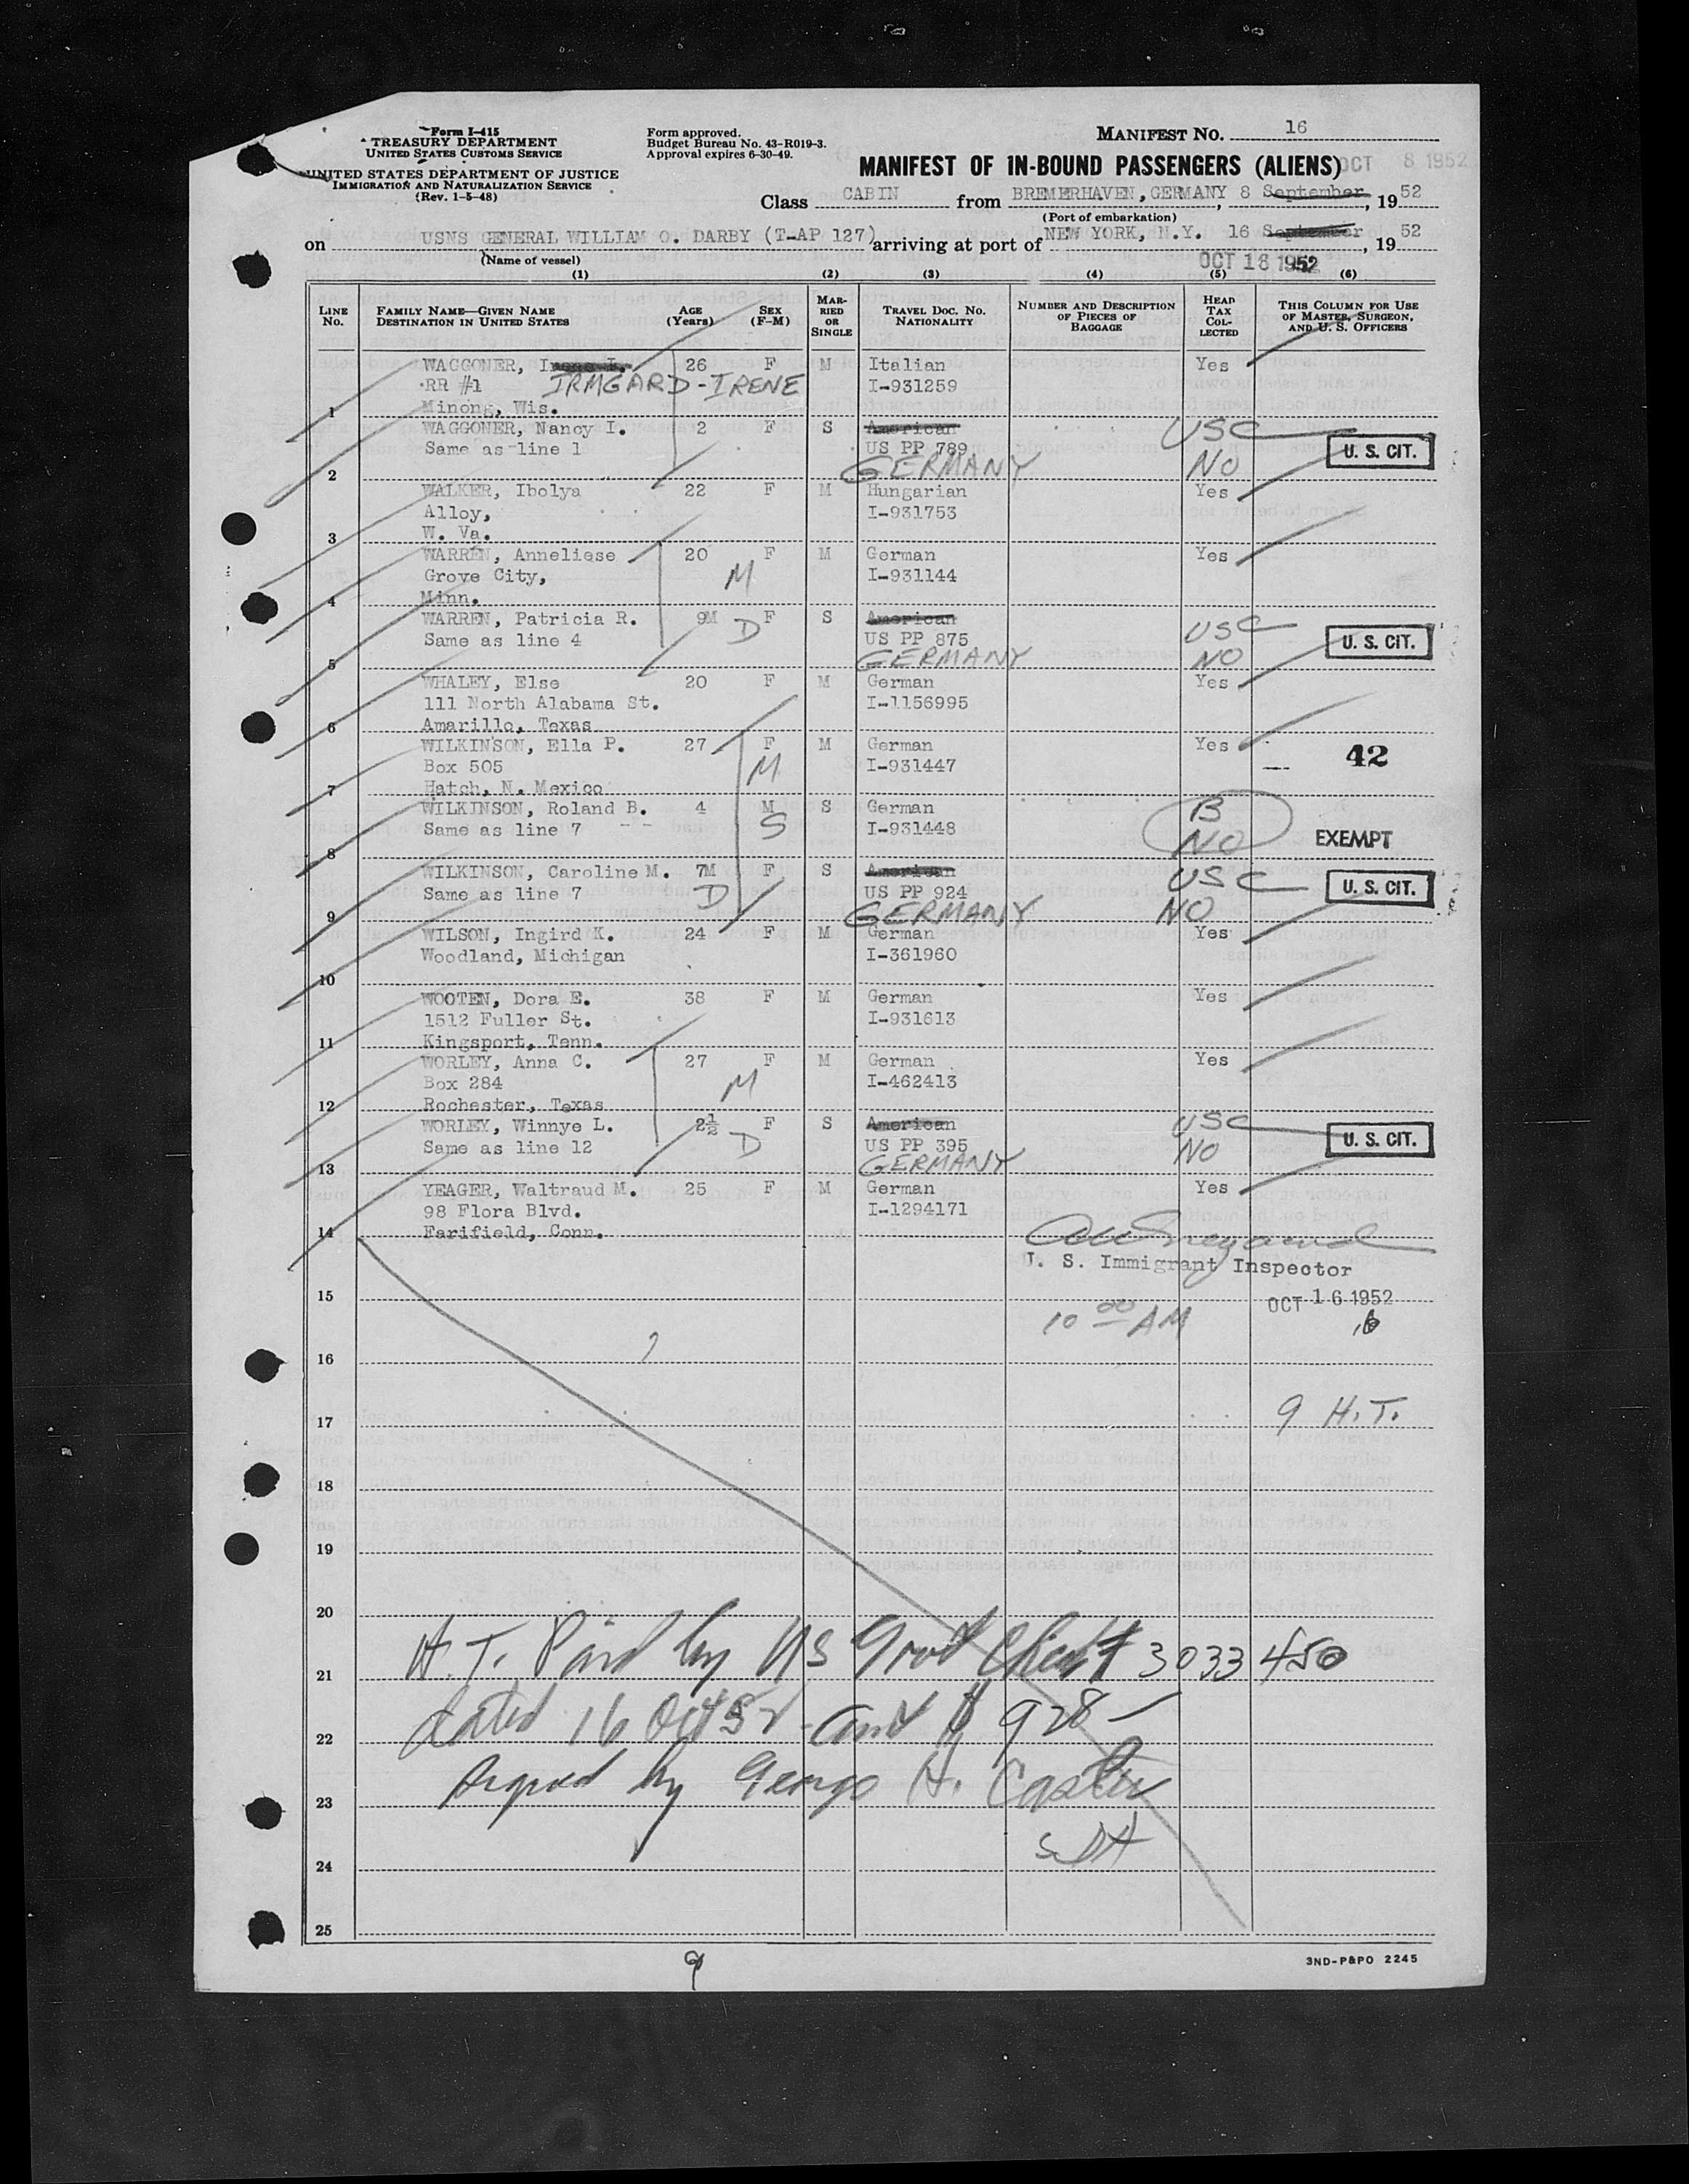 Form I-415
TREASURY DEPARTMENT
UNITED STATES CUSTOMS SERVICE
UNITED STATES DEPARTMENT OF JUSTICE
IMMIGRATION AND NATURALIZATION SERVICE
(Rev. 1-5-48)
Form approved.
Budget Bureau No. 43-R019-3.
Approval expires 6-30-49.
MANIFEST NO. 16
MANIFEST OF IN-BOUND PASSENGERS (ALIENS) OCT 8 1952
Class CABIN from BREMERHAVEN, GERMANY 8 September, 1952
(Port of embarkation)
on USNS GENERAL WILLIAM O. DARBY (T-AP 127) arriving at port of NEW YORK, N.Y. 16 September, 1952
(Name of vessel)
OCT 16 1952
(1) (2) (3) (4) (5) (6)
LINE No. FAMILY NAME—GIVEN NAME DESTINATION IN UNITED STATES AGE (Years) SEX (F-M) MARRIED OR SINGLE TRAVEL DOC. NO. NATIONALITY NUMBER AND DESCRIPTION OF PIECES OF BAGGAGE HEAD TAX COLLECTED THIS COLUMN FOR USE OF MASTER, SURGEON, AND U. S. OFFICERS
WAGGONER, Irene I. 26 F M Italian Yes
RR #1 IRMGARD-IRENE I-931259
1 Minong, Wis.
WAGGONER, Nancy I. 2 F S American USC
Same as line 1 US PP 789 U. S. CIT.
2 GERMANY NO
WALKER, Ibolya 22 F M Hungarian Yes
Alloy, I-931753
3 W. Va.
WARREN, Anneliese 20 F M German Yes
Grove City, M I-931144
4 Minn.
WARREN, Patricia R. 9M F S American USC
Same as line 4 D US PP 875 U. S. CIT.
5 GERMANY NO
WHALEY, Else 20 F M German Yes
111 North Alabama St. I-1156995
6 Amarillo, Texas
WILKINSON, Ella P. 27 F M German Yes 42
Box 505 M I-931447
7 Hatch, N. Mexico
WILKINSON, Roland B. 4 M S German B
Same as line 7 S I-931448 NO EXEMPT
8
WILKINSON, Caroline M. 7M F S American USC
Same as line 7 D US PP 924 U. S. CIT.
9 GERMANY NO
WILSON, Ingird K. 24 F M German Yes
Woodland, Michigan I-361960
10
WOOTEN, Dora E. 38 F M German Yes
1512 Fuller St. I-931613
11 Kingsport, Tenn.
WORLEY, Anna C. 27 F M German Yes
Box 284 M I-462413
12 Rochester, Texas
WORLEY, Winnye L. 2½ F S American USC
Same as line 12 D US PP 395 NO U. S. CIT.
13 GERMANY
YEAGER, Waltraud M. 25 F M German Yes
98 Flora Blvd. I-1294171
14 Farifield, Conn.
U. S. Immigrant Inspector
15 OCT 16 1952
10 00 AM 16
16
17 9 H.T.
18
19
20
21 H.T. Paid by US Govt Check # 3033450
22 dated 16 Oct 52 amt $ 928-
23 signed by George H.
24
25
9
3ND-P&PO 2245